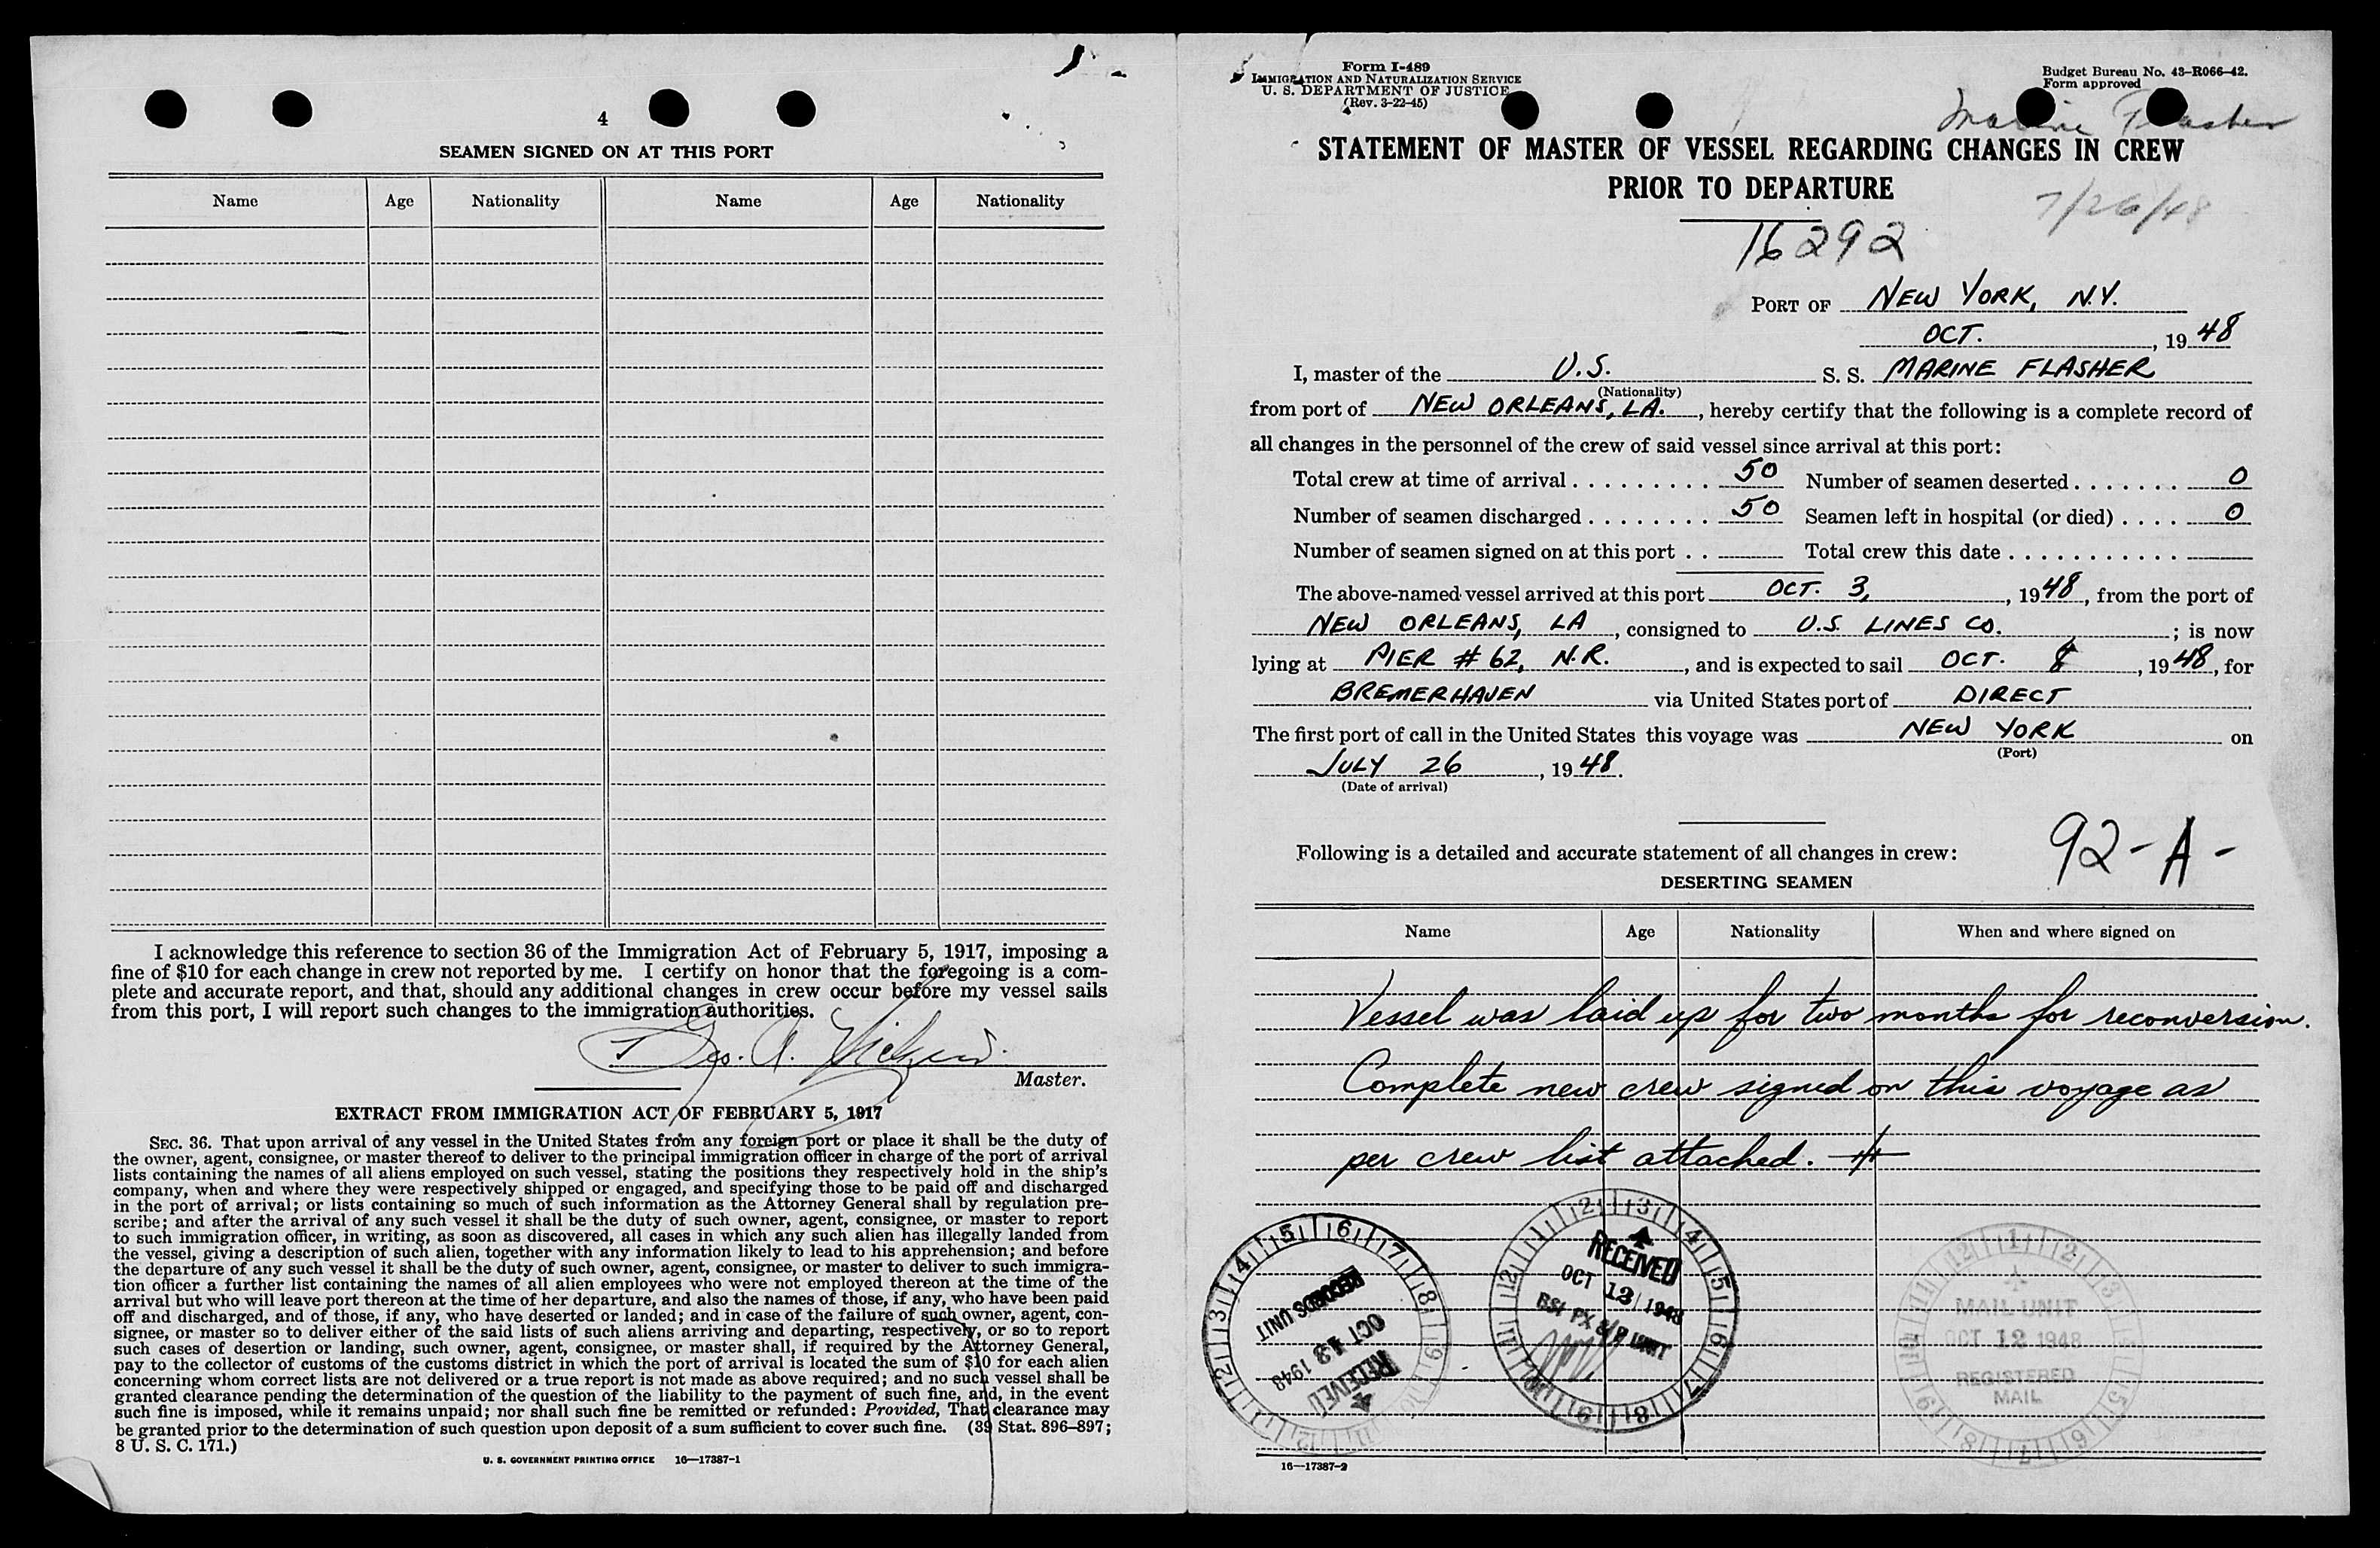 4
SEAMEN SIGNED ON AT THIS PORT
Name Age Nationality Name Age Nationality
I acknowledge this reference to section 36 of the Immigration Act of February 5, 1917, imposing a
fine of $10 for each change in crew not reported by me. I certify on honor that the foregoing is a com-
plete and accurate report, and that, should any additional changes in crew occur before my vessel sails
from this port, I will report such changes to the immigration authorities.
Geo. A.
Master.
EXTRACT FROM IMMIGRATION ACT OF FEBRUARY 5, 1917
SEC. 36. That upon arrival of any vessel in the United States from any foreign port or place it shall be the duty of
the owner, agent, consignee, or master thereof to deliver to the principal immigration officer in charge of the port of arrival
lists containing the names of all aliens employed on such vessel, stating the positions they respectively hold in the ship's
company, when and where they were respectively shipped or engaged, and specifying those to be paid off and discharged
in the port of arrival; or lists containing so much of such information as the Attorney General shall by regulation pre-
scribe; and after the arrival of any such vessel it shall be the duty of such owner, agent, consignee, or master to report
to such immigration officer, in writing, as soon as discovered, all cases in which any such alien has illegally landed from
the vessel, giving a description of such alien, together with any information likely to lead to his apprehension; and before
the departure of any such vessel it shall be the duty of such owner, agent, consignee, or master to deliver to such immigra-
tion officer a further list containing the names of all alien employees who were not employed thereon at the time of the
arrival but who will leave port thereon at the time of her departure, and also the names of those, if any, who have been paid
off and discharged, and of those, if any, who have deserted or landed; and in case of the failure of such owner, agent, con-
signee, or master so to deliver either of the said lists of such aliens arriving and departing, respectively, or so to report
such cases of desertion or landing, such owner, agent, consignee, or master shall, if required by the Attorney General,
pay to the collector of customs of the customs district in which the port of arrival is located the sum of $10 for each alien
concerning whom correct lists are not delivered or a true report is not made as above required; and no such vessel shall be
granted clearance pending the determination of the question of the liability to the payment of such fine, and, in the event
such fine is imposed, while it remains unpaid; nor shall such fine be remitted or refunded: Provided, That clearance may
be granted prior to the determination of such question upon deposit of a sum sufficient to cover such fine. (39 Stat. 896-897;
8 U. S. C. 171.)
U. S. GOVERNMENT PRINTING OFFICE 16—17387-1
Form I-489
IMMIGRATION AND NATURALIZATION SERVICE
U. S. DEPARTMENT OF JUSTICE
(Rev. 3-22-45)
Budget Bureau No. 43-R066-42.
Form approved
Marine Flasher
STATEMENT OF MASTER OF VESSEL REGARDING CHANGES IN CREW
PRIOR TO DEPARTURE
7/26/48
16292
PORT OF NEW YORK, N.Y.
OCT. , 1948
I, master of the U.S. S. S. MARINE FLASHER
(Nationality)
from port of NEW ORLEANS, LA. , hereby certify that the following is a complete record of
all changes in the personnel of the crew of said vessel since arrival at this port:
Total crew at time of arrival . . . . . . . . . 50 Number of seamen deserted . . . . . . . 0
Number of seamen discharged . . . . . . . . 50 Seamen left in hospital (or died) . . . . 0
Number of seamen signed on at this port . . Total crew this date . . . . . . . . . . .
The above-named vessel arrived at this port OCT. 3, , 1948, from the port of
NEW ORLEANS, LA , consigned to U.S. LINES CO. ; is now
lying at PIER # 62, N.R. , and is expected to sail OCT. 8 , 1948, for
BREMERHAVEN via United States port of DIRECT
The first port of call in the United States this voyage was NEW YORK on
(Port)
JULY 26 , 1948.
(Date of arrival)
92-A-
Following is a detailed and accurate statement of all changes in crew:
DESERTING SEAMEN
Name Age Nationality When and where signed on
Vessel was laid up for two months for reconversion.
Complete new crew signed on this voyage as
per crew list attached.
RECORDS UNIT
OCT 13 1948
RECEIVED
RECEIVED
OCT 13 1948
MAIL UNIT
OCT 12 1948
REGISTERED
MAIL
16—17387-2